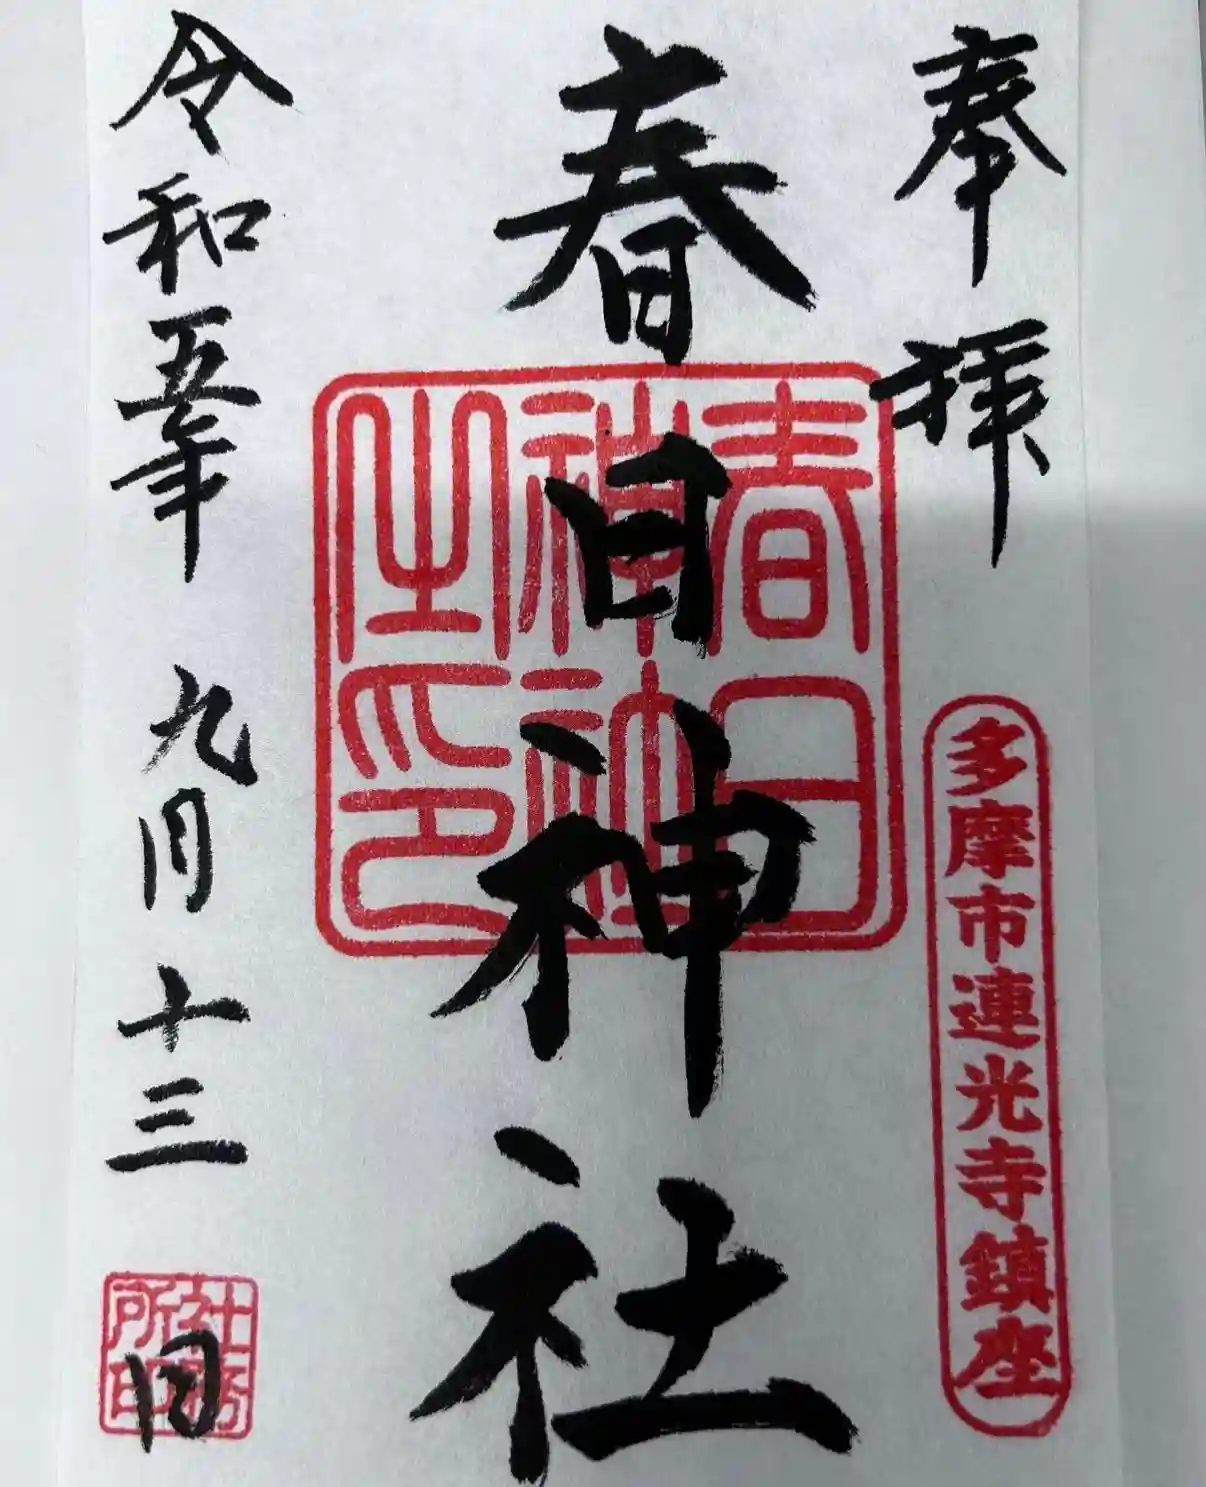 奉拝
多摩市連光寺鎮座
春日神社
春日
神社
之印
令和五年 九月十三日
社務
所印